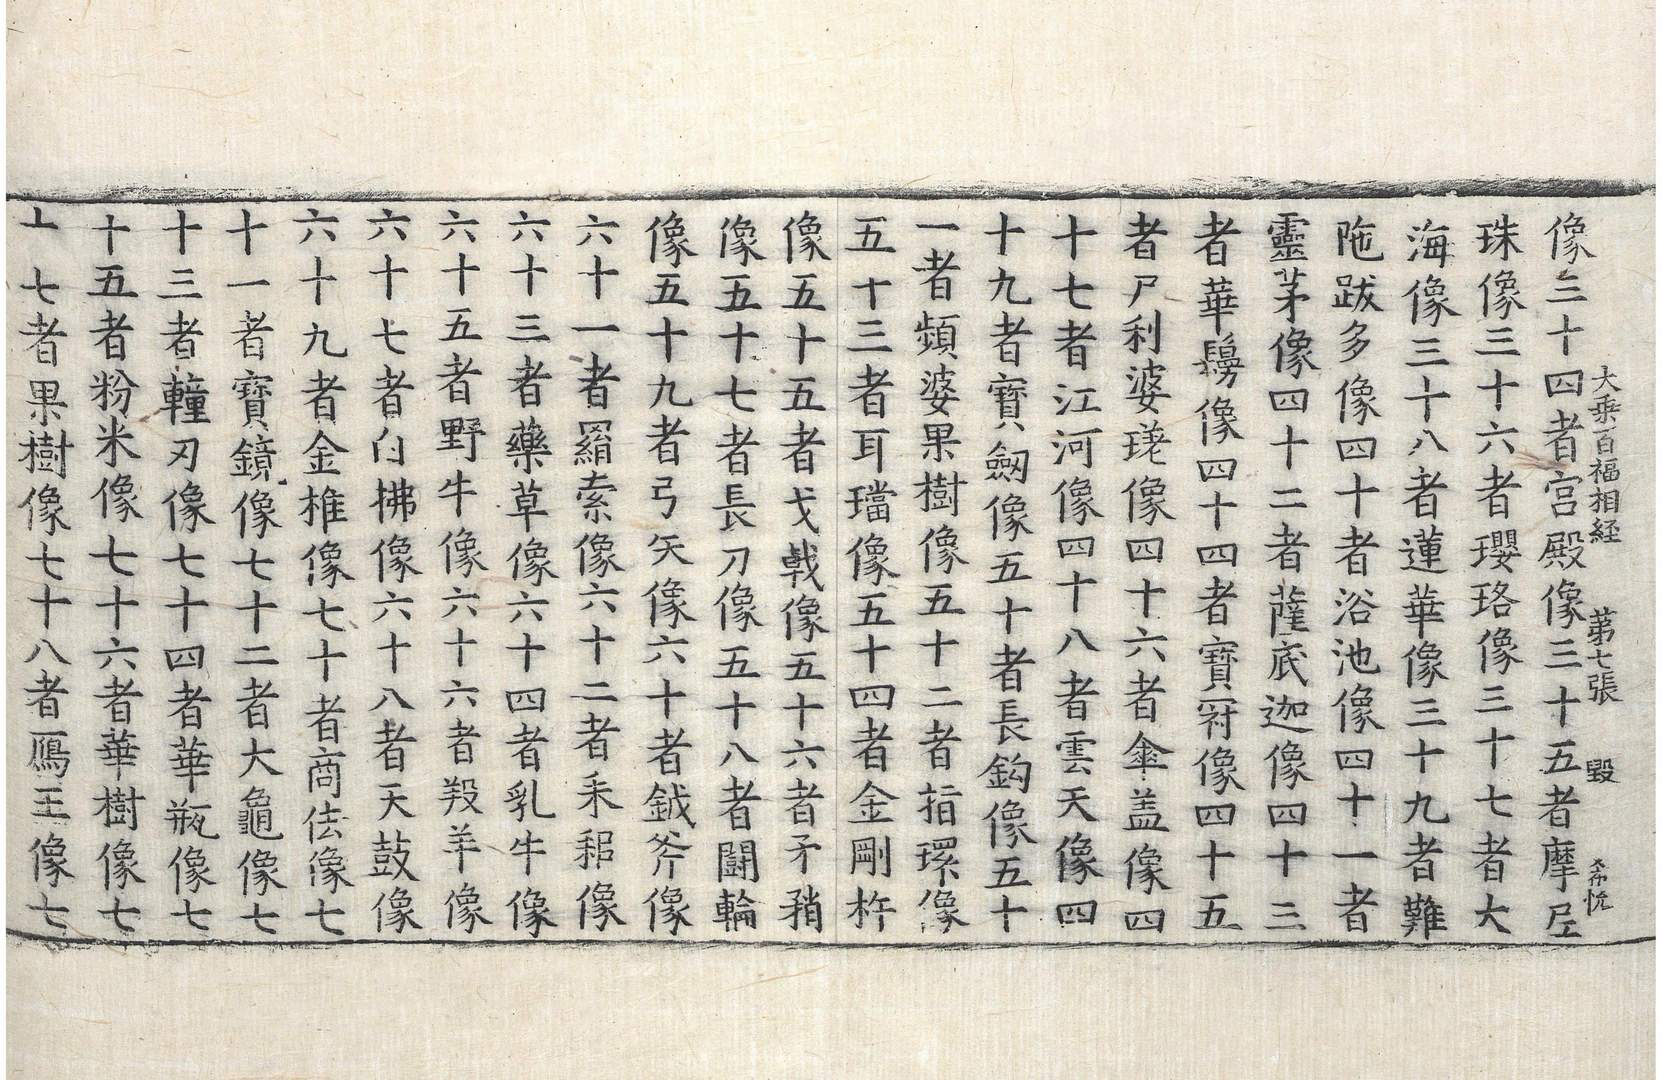 大乗百福相経　第七張　毀　希忱
像三十四者宫殿像三十五者摩尼
珠像三十六者瓔珞像三十七者大
海像三十八者蓮華像三十九者難
陁跋多像四十者浴池像四十一者
靈茅像四十二者薩底迦像四十三
者華鬘像四十四者寶冠像四十五
者尸利婆蹉像四十六者傘盖像四
十七者江河像四十八者雲天像四
十九者寶劔像五十者長鈎像五十
一者頻婆果樹像五十二者指環像
五十三者耳璫像五十四者金剛杵
像五十五者戈戟像五十六者矛矟
像五十七者長刀像五十八者鬪輪
像五十九者弓矢像六十者鉞斧像
六十一者羂索像六十二者耒耜像
六十三者藥草像六十四者乳牛像
六十五者野牛像六十六者羖羊像
六十七者白拂像六十八者天鼓像
六十九者金椎像七十者商佉像七
十一者寶鏡像七十二者大龜像七
十三者轒刃像七十四者華瓶像七
十五者粉米像七十六者華樹像七
十七者果樹像七十八者鴈王像七